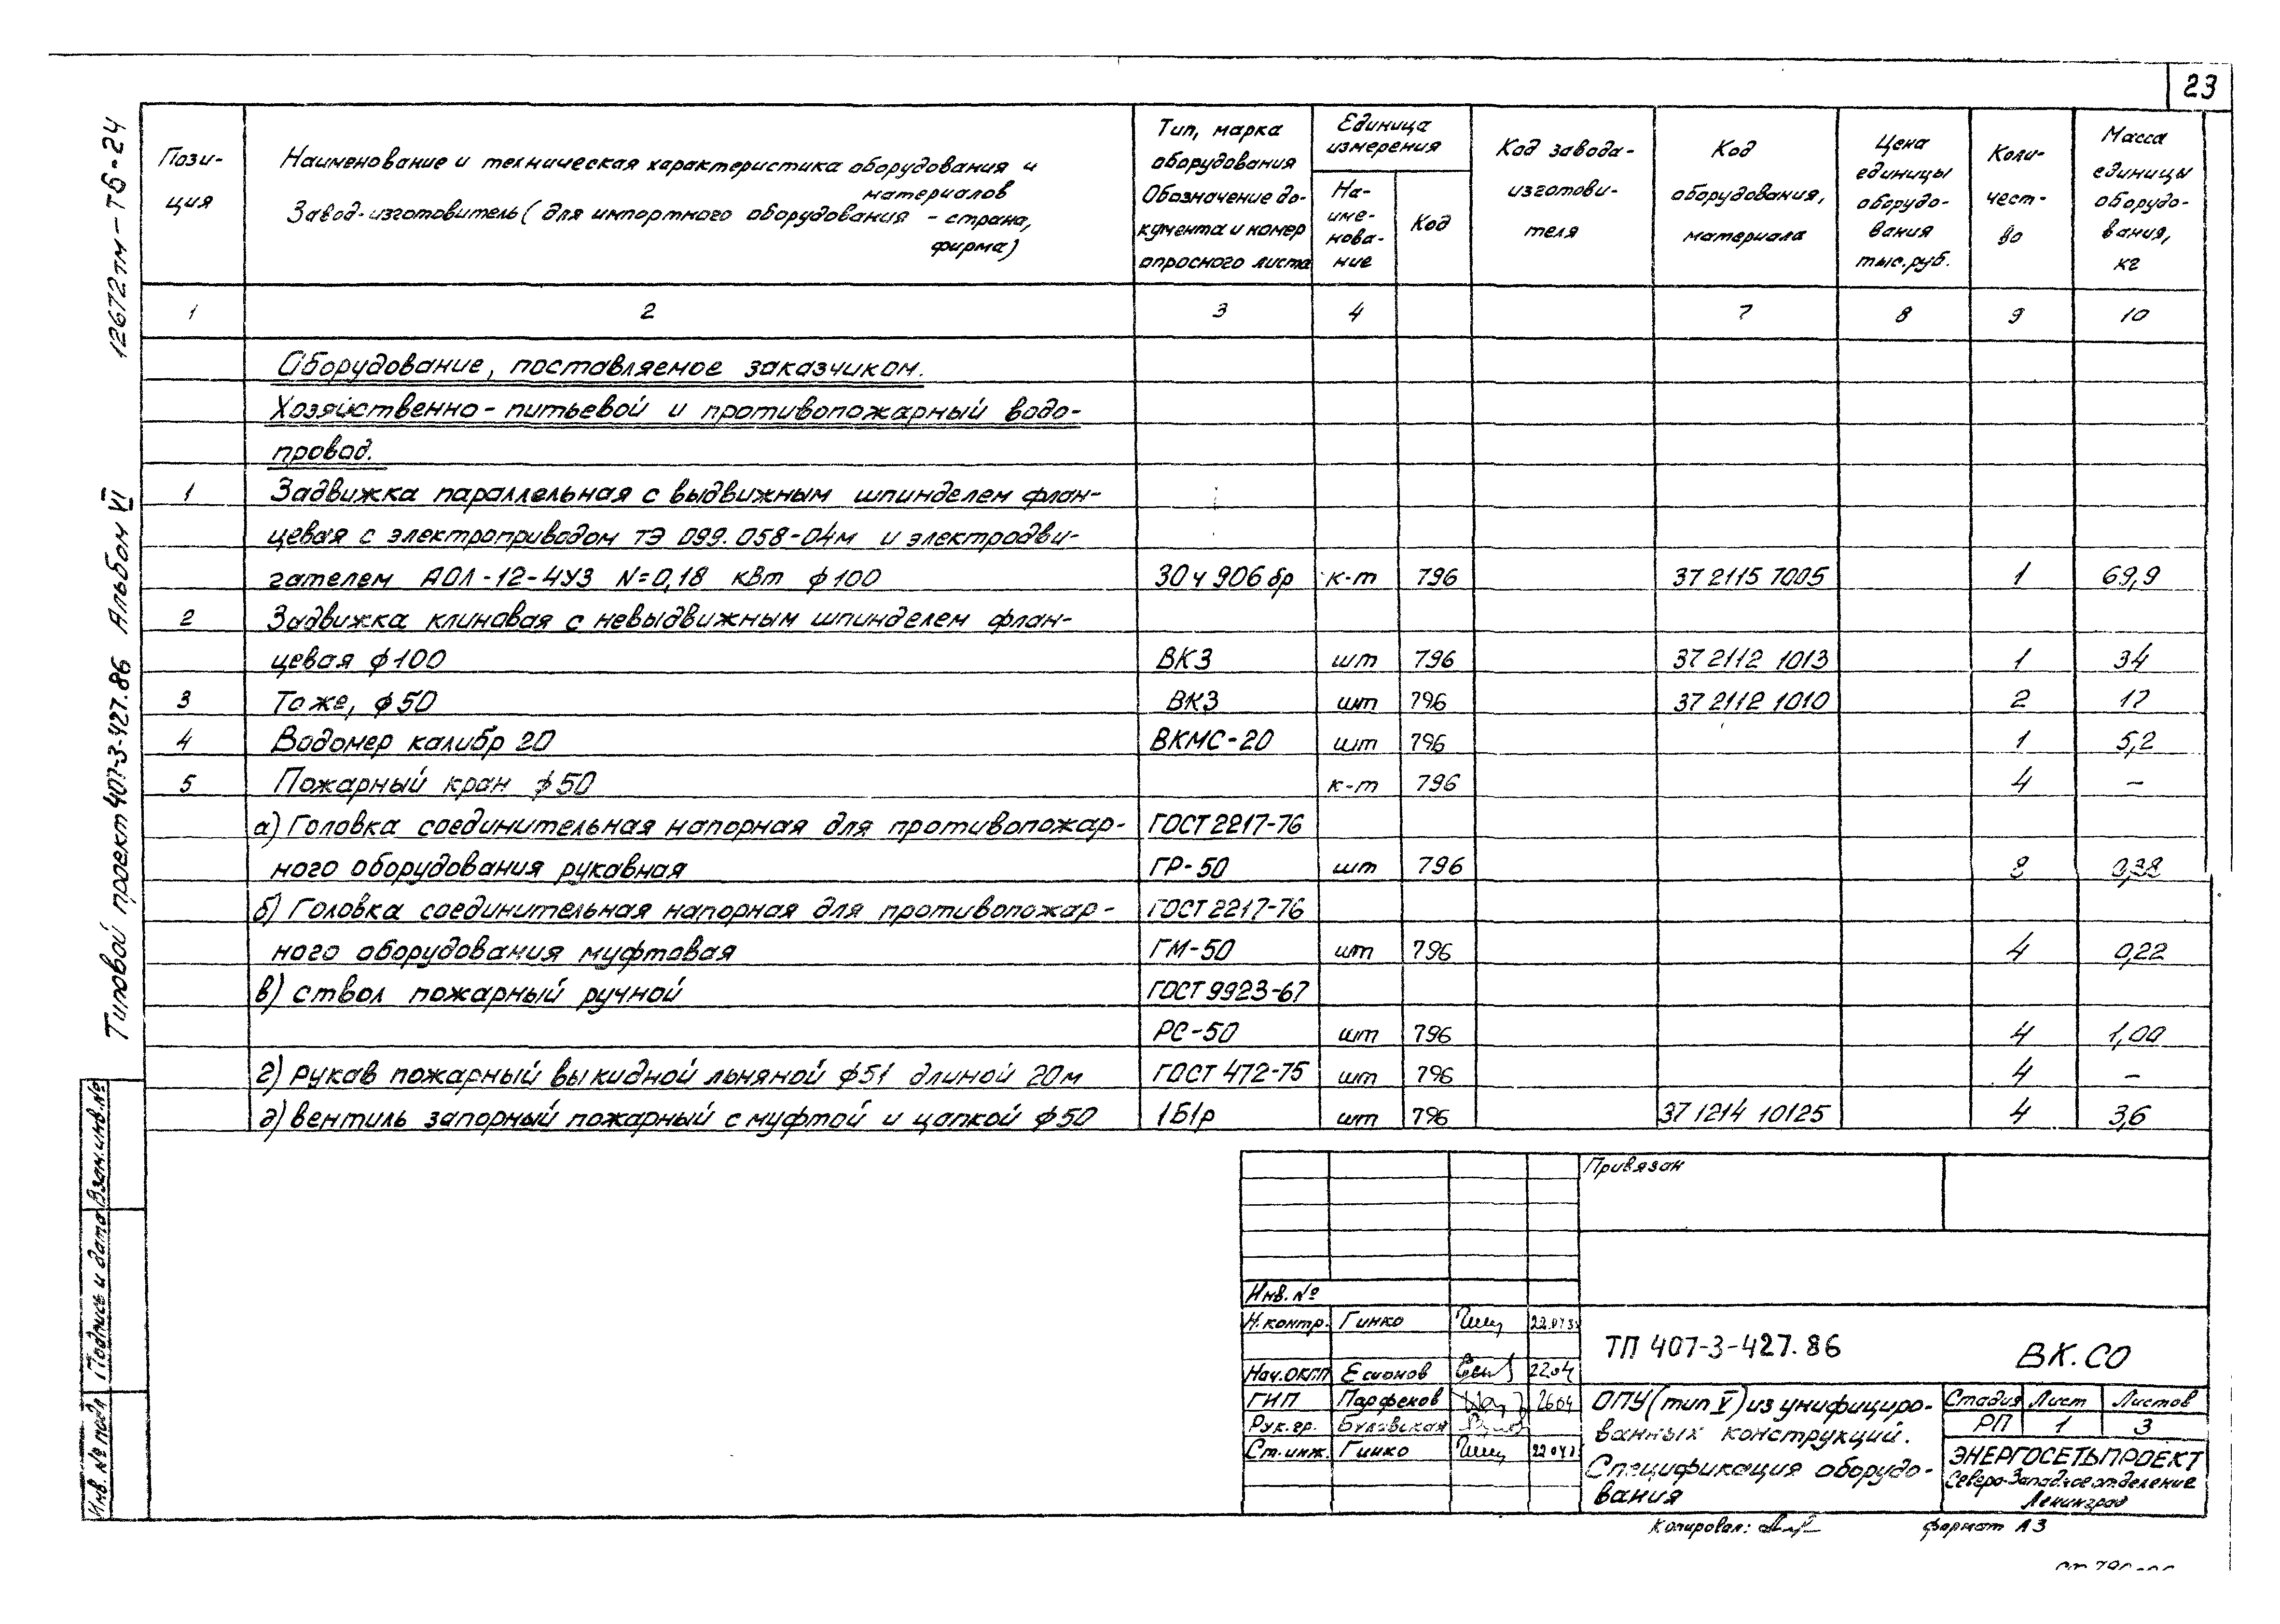 23
12672тм-Т6-24
Типовой проект 407-3-427.86 Альбом VI
Пози-
ция
Наименование и техническая характеристика оборудования и
материалов
Завод-изготовитель (для импортного оборудования - страна,
фирма)
Тип, марка
оборудования
Обозначение до-
кумента и номер
опросного листа
Единица
измерения
На-
име-
нова-
ние
Код
Код завода-
изготови-
теля
Код
оборудования,
материала
Цена
единицы
оборудо-
вания
тыс.руб.
Коли-
чест-
во
Масса
единицы
оборудо-
вания,
кг
1 2 3 4 7 8 9 10
Оборудование, поставляемое заказчиком.
Хозяйственно-питьевой и противопожарный водо-
провод.
1 Задвижка параллельная с выдвижным шпинделем флан-
цевая с электроприводом ТЭ 099.058-04м и электродви-
гателем АОЛ-12-4У3 N=0,18 квт ф100 30ч906бр к-т 796 37 2115 7005 1 69,9
2 Задвижка клиновая с невыдвижным шпинделем флан-
цевая ф100 ВКЗ шт 796 37 2112 1013 1 34
3 Тоже, ф50 ВКЗ шт 796 37 2112 1010 2 17
4 Водомер калибр 20 ВКМС-20 шт 796 1 5,2
5 Пожарный кран ф50 к-т 796 4 -
а) Головка соединительная напорная для противопожар- ГОСТ 2217-76
ного оборудования рукавная ГР-50 шт 796 8 0,38
б) Головка соединительная напорная для противопожар- ГОСТ 2217-76
ного оборудования муфтовая ГМ-50 шт 796 4 0,22
в) ствол пожарный ручной ГОСТ 9923-67
РС-50 шт 796 4 1,00
г) рукав пожарный выкидной льняной ф51 длиной 20м ГОСТ 472-75 шт 796 4 -
д) вентиль запорный пожарный с муфтой и цапкой ф50 1Б1р шт 796 37 1214 10125 4 3,6
Взам.инв.№
Подпись и дата
Инв.№ подл
Привязан
Инв.№
Н.контр. Гинко
Нач.ОКПП Есионов 22.04
ГИП Парфенов 26.04
Рук.гр. Булавская
Ст.инж. Гинко
ТП 407-3-427.86 ВК.СО
ОПУ (тип V) из унифициро-
ванных конструкций.
Спецификация оборудо-
вания
Стадия Лист Листов
РП 1 3
ЭНЕРГОСЕТЬПРОЕКТ
Северо-Западное отделение
Ленинград
Копировал:
формат А3